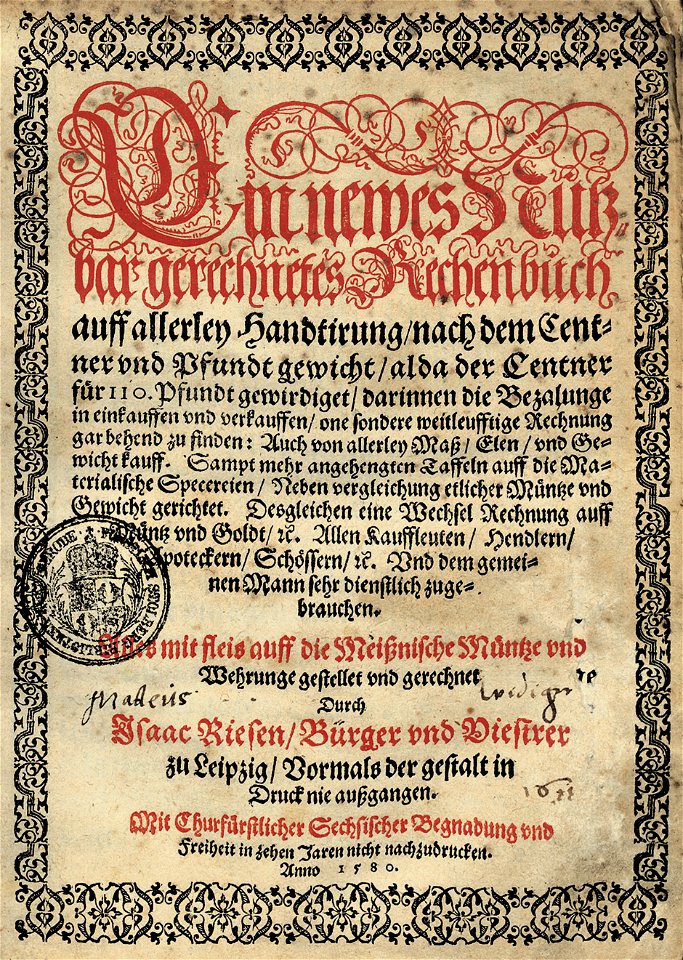 Ein newes Nutz-
bar gerechnetes Rechenbuch
auff allerley Handtirung/nach dem Cent-
ner vnd Pfundt gewicht/alda der Centner
für 110. Pfundt gewirdiget/darinnen die Bezalunge
in einkauffen vnd verkauffen/one sondere weitleufftige Rechnung
gar behend zu finden: Auch von allerley Maß/Elen/vnd Ge-
wicht kauff. Sampt mehr angehengten Taffeln auff die Ma-
terialische Specereien/Neben vergleichung etlicher Müntze vnd
Gewicht gerichtet. Desgleichen eine Wechsel Rechnung auff
Müntz vnd Goldt/ꝛc. Allen Kauffleuten/Hendlern/
Apoteckern/Schössern/ꝛc. Vnd dem gemei-
nen Mann sehr dienstlich zuge-
brauchen.
Alles mit fleis auff die Meißnische Müntze vnd
Wehrunge gestellet vnd gerechnet
Matteus
Durch
Isaac Riesen/Bürger vnd Viesirer
zu Leipzig/Vormals der gestalt in
Druck nie außgangen.
Mit Churfürstlicher Sechsischer Begnadung vnd
Freiheit in zehen Jaren nicht nachzudrucken.
Anno 1580.